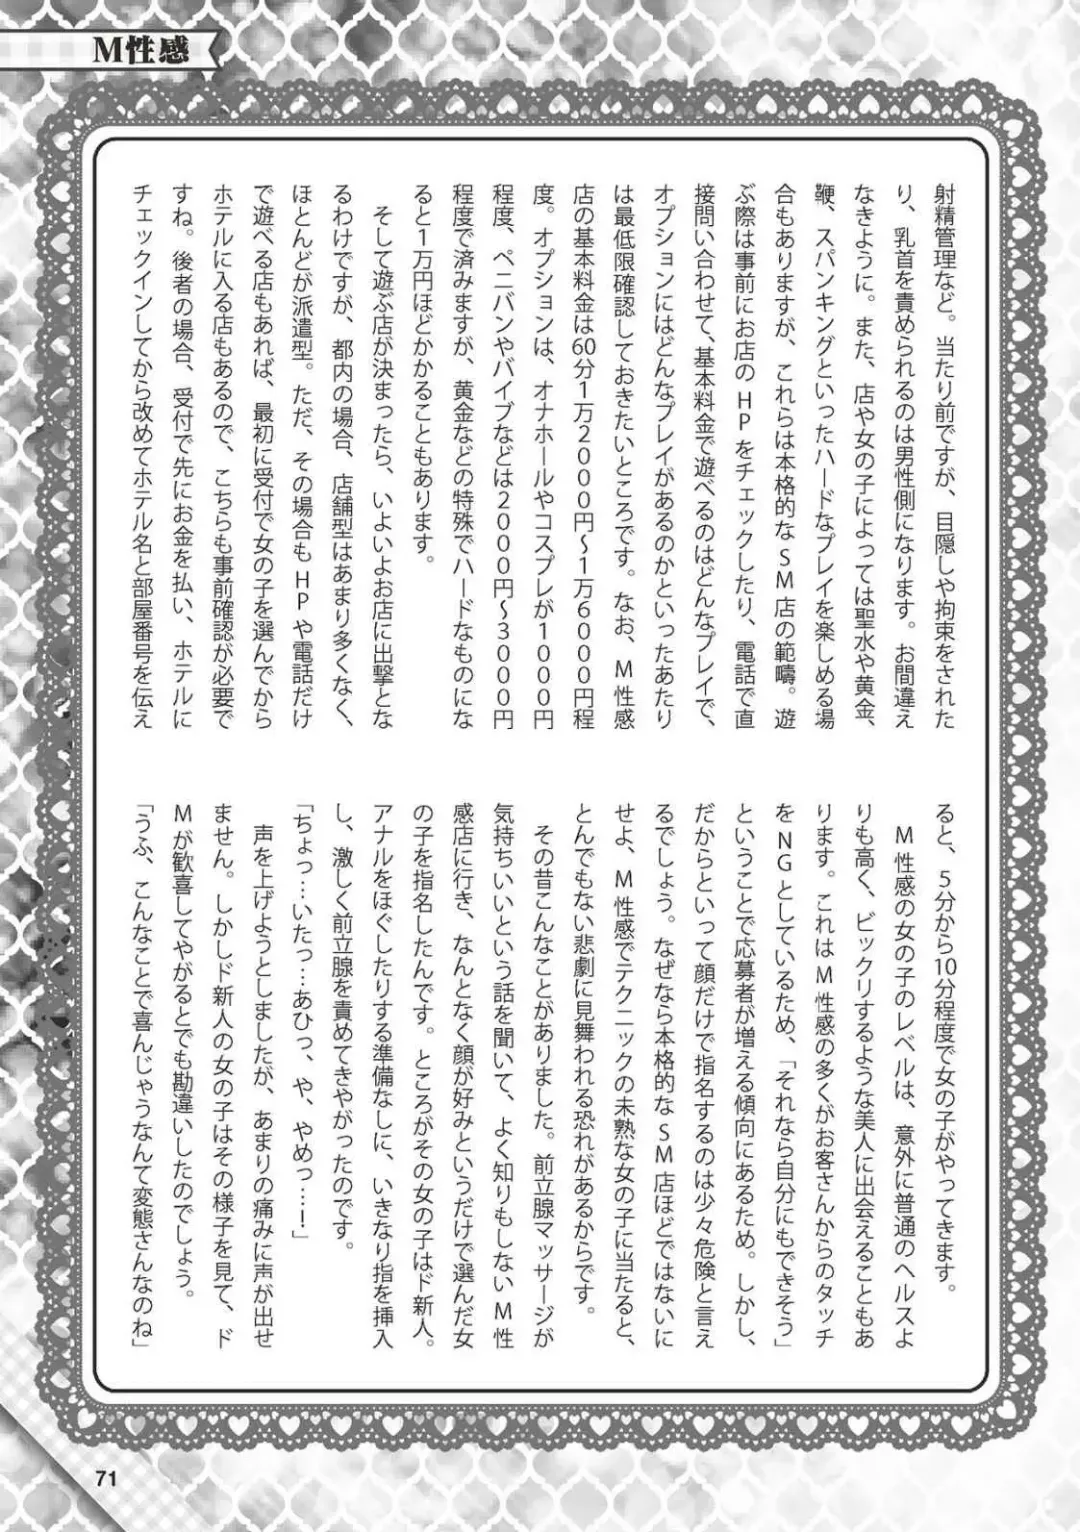 M性感
射精管理など。当たり前ですが、目隠しや拘束をされた
り、乳首を責められるのは男性側になります。お間違え
なきように。また、店や女の子によっては聖水や黄金、
鞭、スパンキングといったハードなプレイを楽しめる場
合もありますが、これらは本格的なSM店の範疇。遊
ぶ際は事前にお店のHPをチェックしたり、電話で直
接問い合わせて、基本料金で遊べるのはどんなプレイで、
オプションにはどんなプレイがあるのかといったあたり
は最低限確認しておきたいところです。なお、M性感
店の基本料金は60分1万2000円〜1万6000円程
度。オプションは、オナホールやコスプレが1000円
程度、ペニバンやバイブなどは2000円〜3000円
程度で済みますが、黄金などの特殊でハードなものにな
ると1万円ほどかかることもあります。
そして遊ぶ店が決まったら、いよいよお店に出撃とな
るわけですが、都内の場合、店舗型はあまり多くなく、
ほとんどが派遣型。ただ、その場合もHPや電話だけ
で遊べる店もあれば、最初に受付で女の子を選んでから
ホテルに入る店もあるので、こちらも事前確認が必要で
すね。後者の場合、受付で先にお金を払い、ホテルに
チェックインしてから改めてホテル名と部屋番号を伝え
ると、5分から10分程度で女の子がやってきます。
M性感の女の子のレベルは、意外に普通のヘルスよ
りも高く、ビックリするような美人に出会えることもあ
ります。これはM性感の多くがお客さんからのタッチ
をNGとしているため、「それなら自分にもできそう」
ということで応募者が増える傾向にあるため。しかし、
だからといって顔だけで指名するのは少々危険と言え
るでしょう。なぜなら本格的なSM店ほどではないに
せよ、M性感でテクニックの未熟な女の子に当たると、
とんでもない悲劇に見舞われる恐れがあるからです。
その昔こんなことがありました。前立腺マッサージが
気持ちいいという話を聞いて、よく知りもしないM性
感店に行き、なんとなく顔が好みというだけで選んだ女
の子を指名したんです。ところがその女の子はド新人。
アナルをほぐしたりする準備なしに、いきなり指を挿入
し、激しく前立腺を責めてきやがったのです。
「ちょっ…いたっ…あひっ、や、やめっ…！」
声を上げようとしましたが、あまりの痛みに声が出せ
ません。しかしド新人の女の子はその様子を見て、ド
Mが歓喜してやがるとでも勘違いしたのでしょう。
「うふ、こんなことで喜んじゃうなんて変態さんなのね」
71